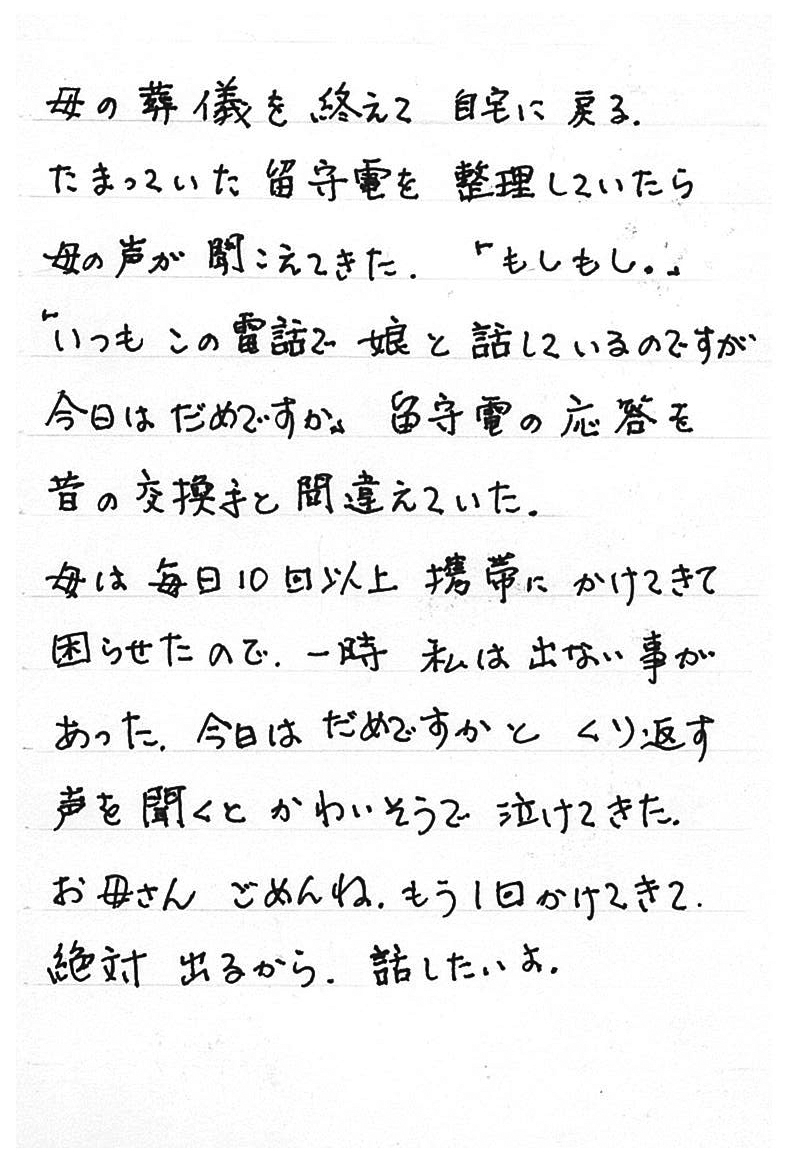 母の葬儀を終えて 自宅に戻る.
たまっていた 留守電を 整理していたら
母の声が 聞こえてきた. 「もしもし。」
「いつもこの電話で 娘と話しているのですが
今日はだめですか」 留守電の応答を
昔の交換手と間違えていた.
母は毎日10回以上 携帯にかけてきて
困らせたので. 一時 私は出ない事が
あった. 今日はだめですかと くり返す
声を聞くと かわいそうで 泣けてきた.
お母さん ごめんね. もう1回かけてきて.
絶対 出るから. 話したいよ.